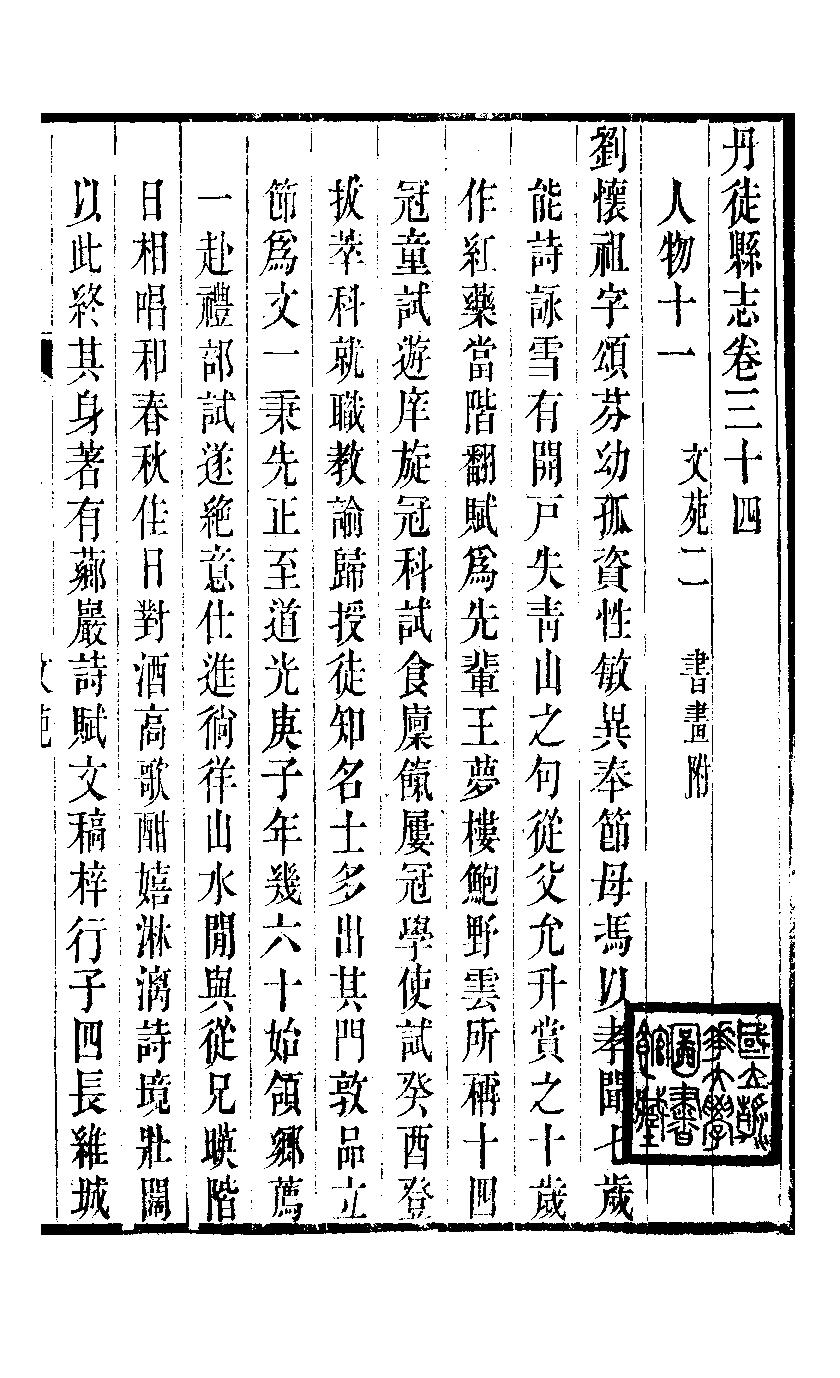 丹徒縣志卷三十四
人物十一　文苑二　書畫附
劉懷祖字頌芬幼孤資性敏異奉節母馮以孝聞七歲
能詩詠雪有開戸失青山之句從父允升賞之十歲
作紅藥當階翻賦爲先輩王夢樓鮑野雲所稱十四
冠童試遊庠旋冠科試食廩餼屢冠學使試癸酉登
拔萃科就職教諭歸授徒知名士多出其門敦品立
節爲文一秉先正至道光庚子年幾六十始領鄉薦
一赴禮部試遂絶意仕進徜徉山水閒與從兄暎階
日相唱和春秋佳日對酒高歌酣嬉淋漓詩境壯闊
以此終其身著有薌巖詩賦文稿梓行子四長維城
文苑